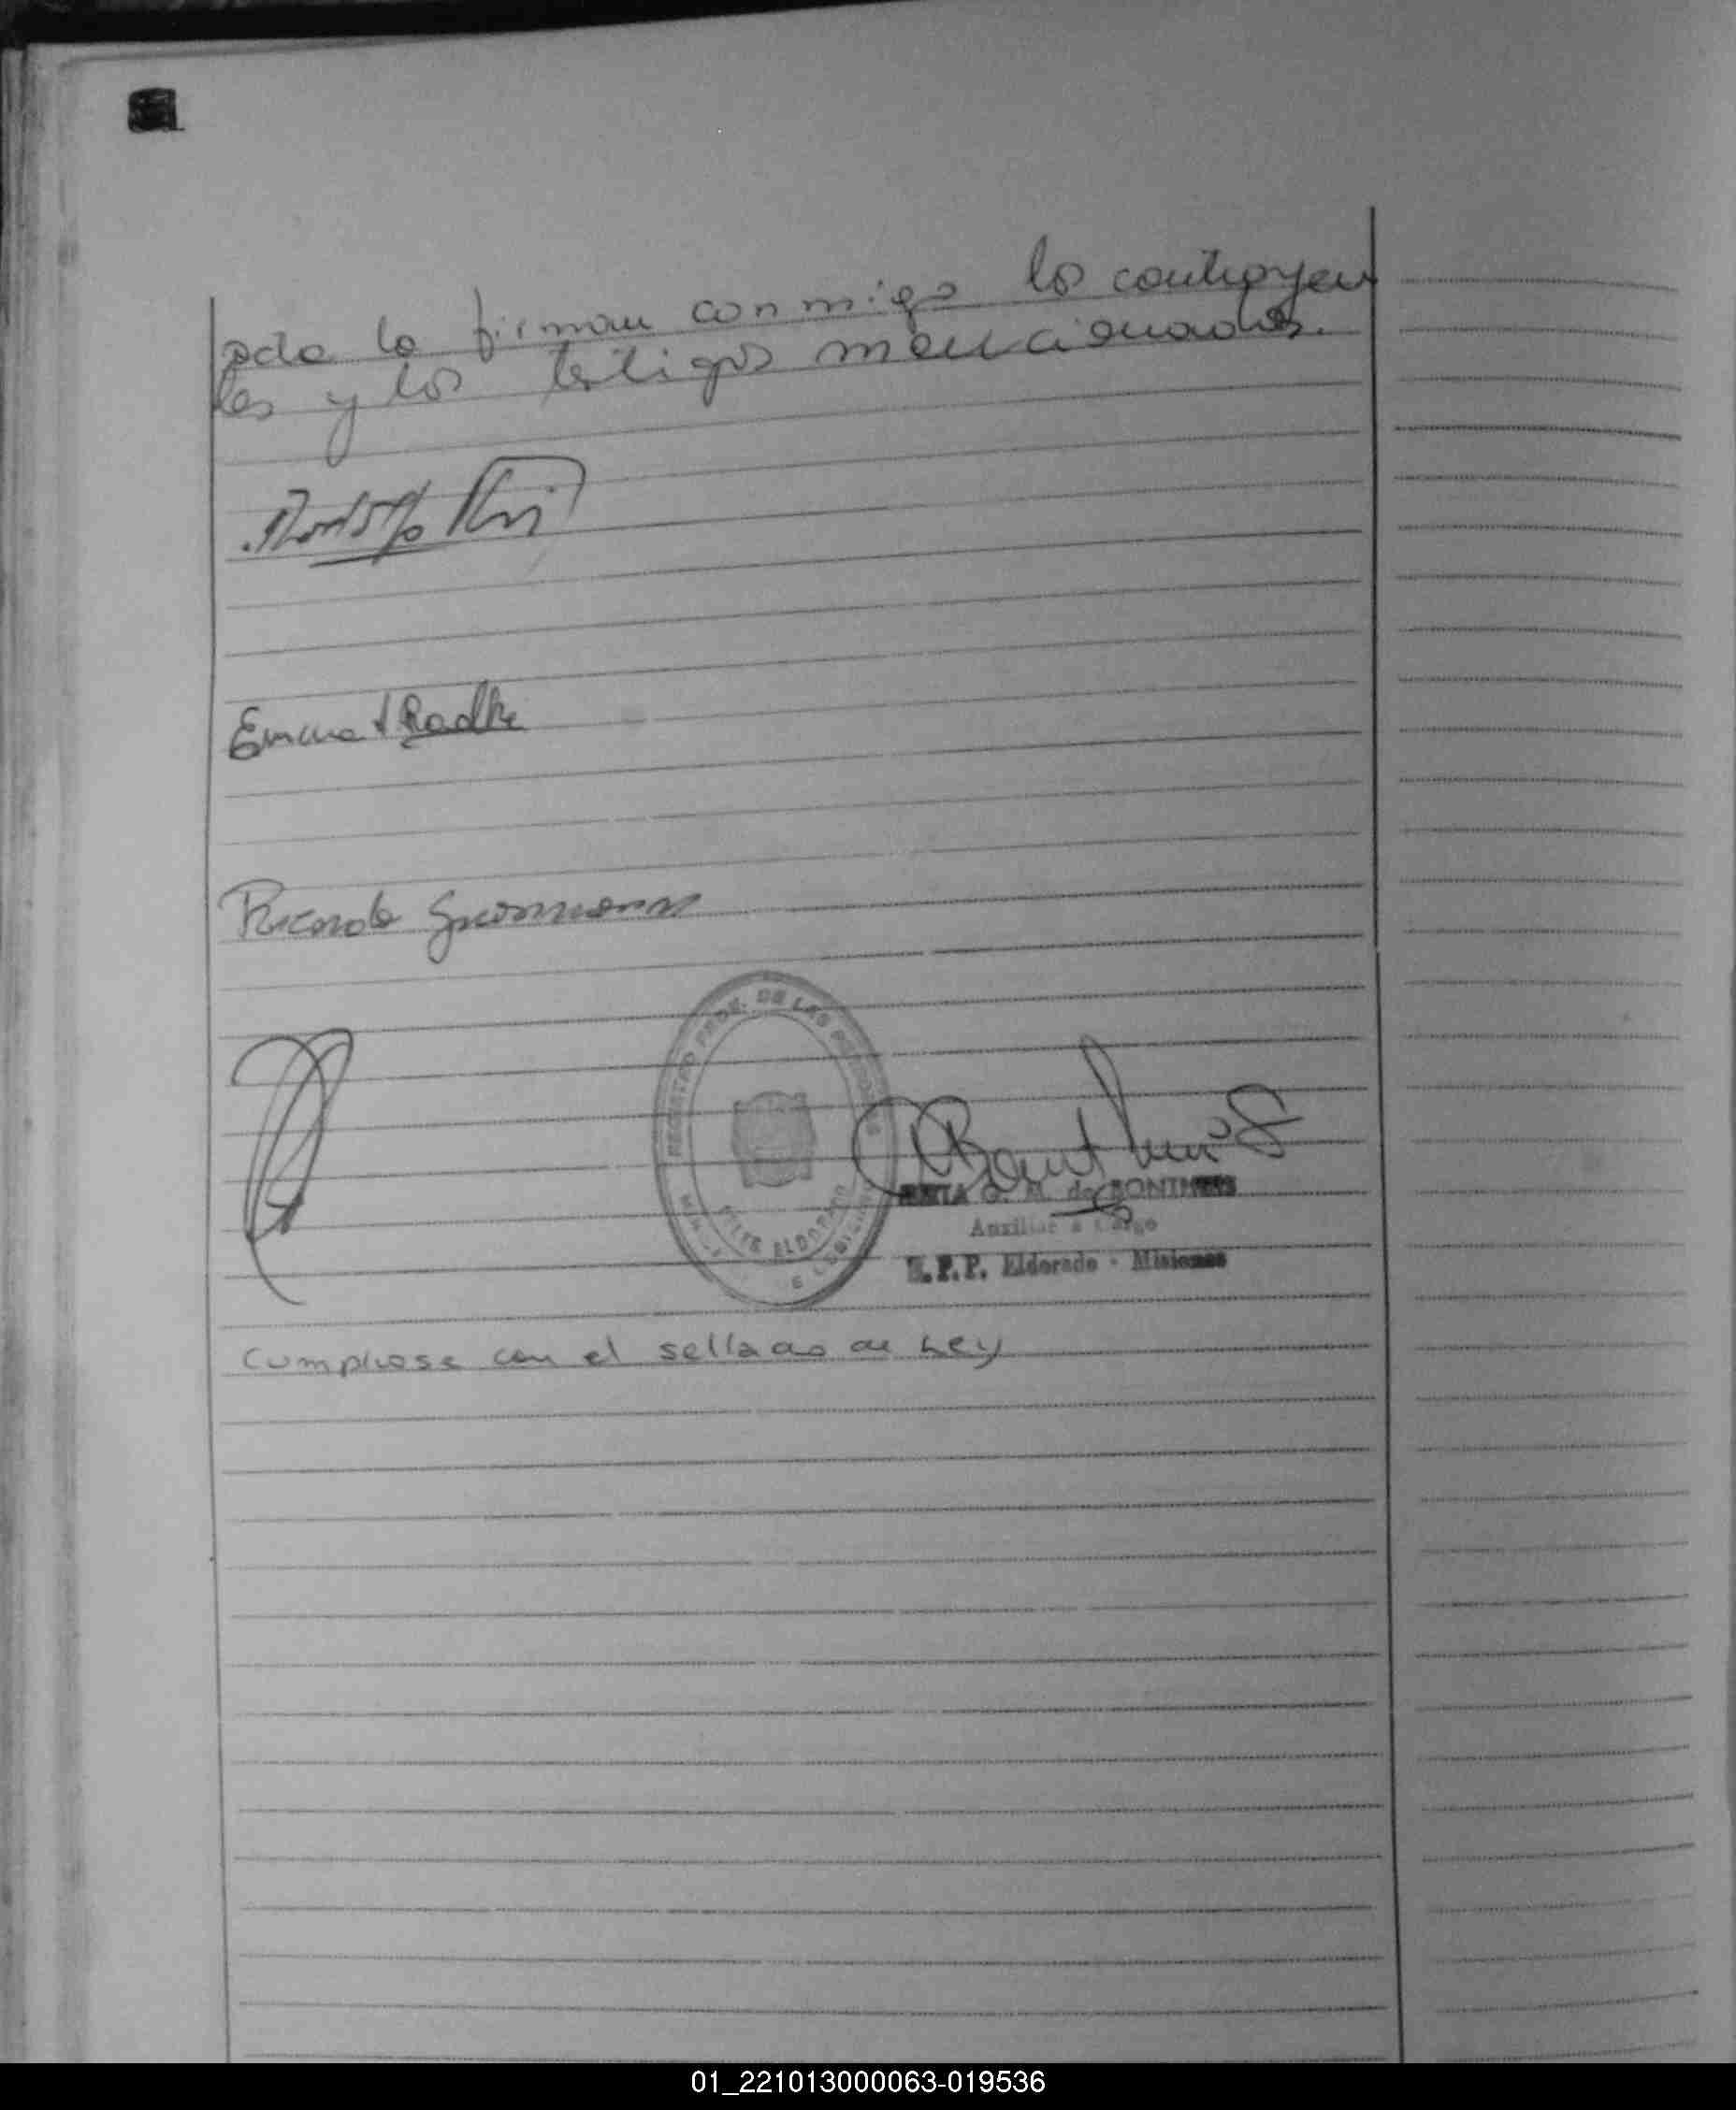 acta la firman conmigo los contrayen
tes y los testigos mencionados.
Rodolfo
Emma Radke
Ricardo
REGISTRO PROV. DE LAS PERSONAS
ELDORADO
G. M. de
Auxiliar a Cargo
R.P.P. Eldorado - Misiones
Cumplase con el sellado de Ley
01_221013000063-019536